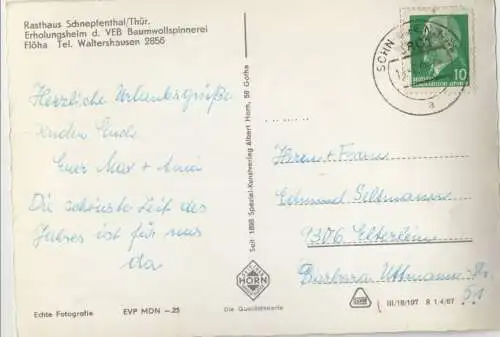 Rasthaus Schnepfenthal/Thür.
Erholungsheim d. VEB Baumwollspinnerei
Flöha Tel. Waltershausen 2856
Herzliche Urlaubsgrüße
senden Euch
Euer Max +
Die schönste Zeit des
Jahres ist für uns
da
Echte Fotografie EVP MDN -.25
Seit 1898 Spezial-Kunstverlag Albert Horn, 58 Gotha
HORN
Die Qualitätskarte
SCHN
10
a
Herrn + Frau
Edmund
9306 Elterlein
Barbara Uttmann-Str.
51
III/18/197 R 1.4/67